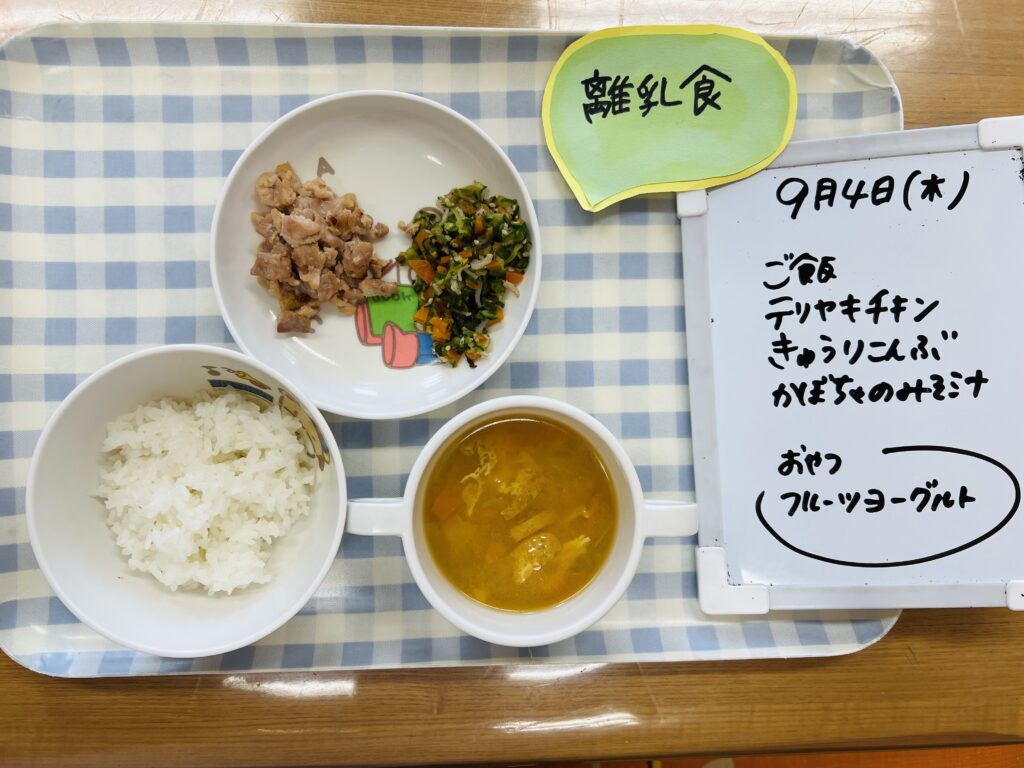 離乳食
9月4日(木)
ご飯
テリヤキチキン
きゅうりこんぶ
かぼちゃのみそ汁
おやつ
フルーツヨーグルト